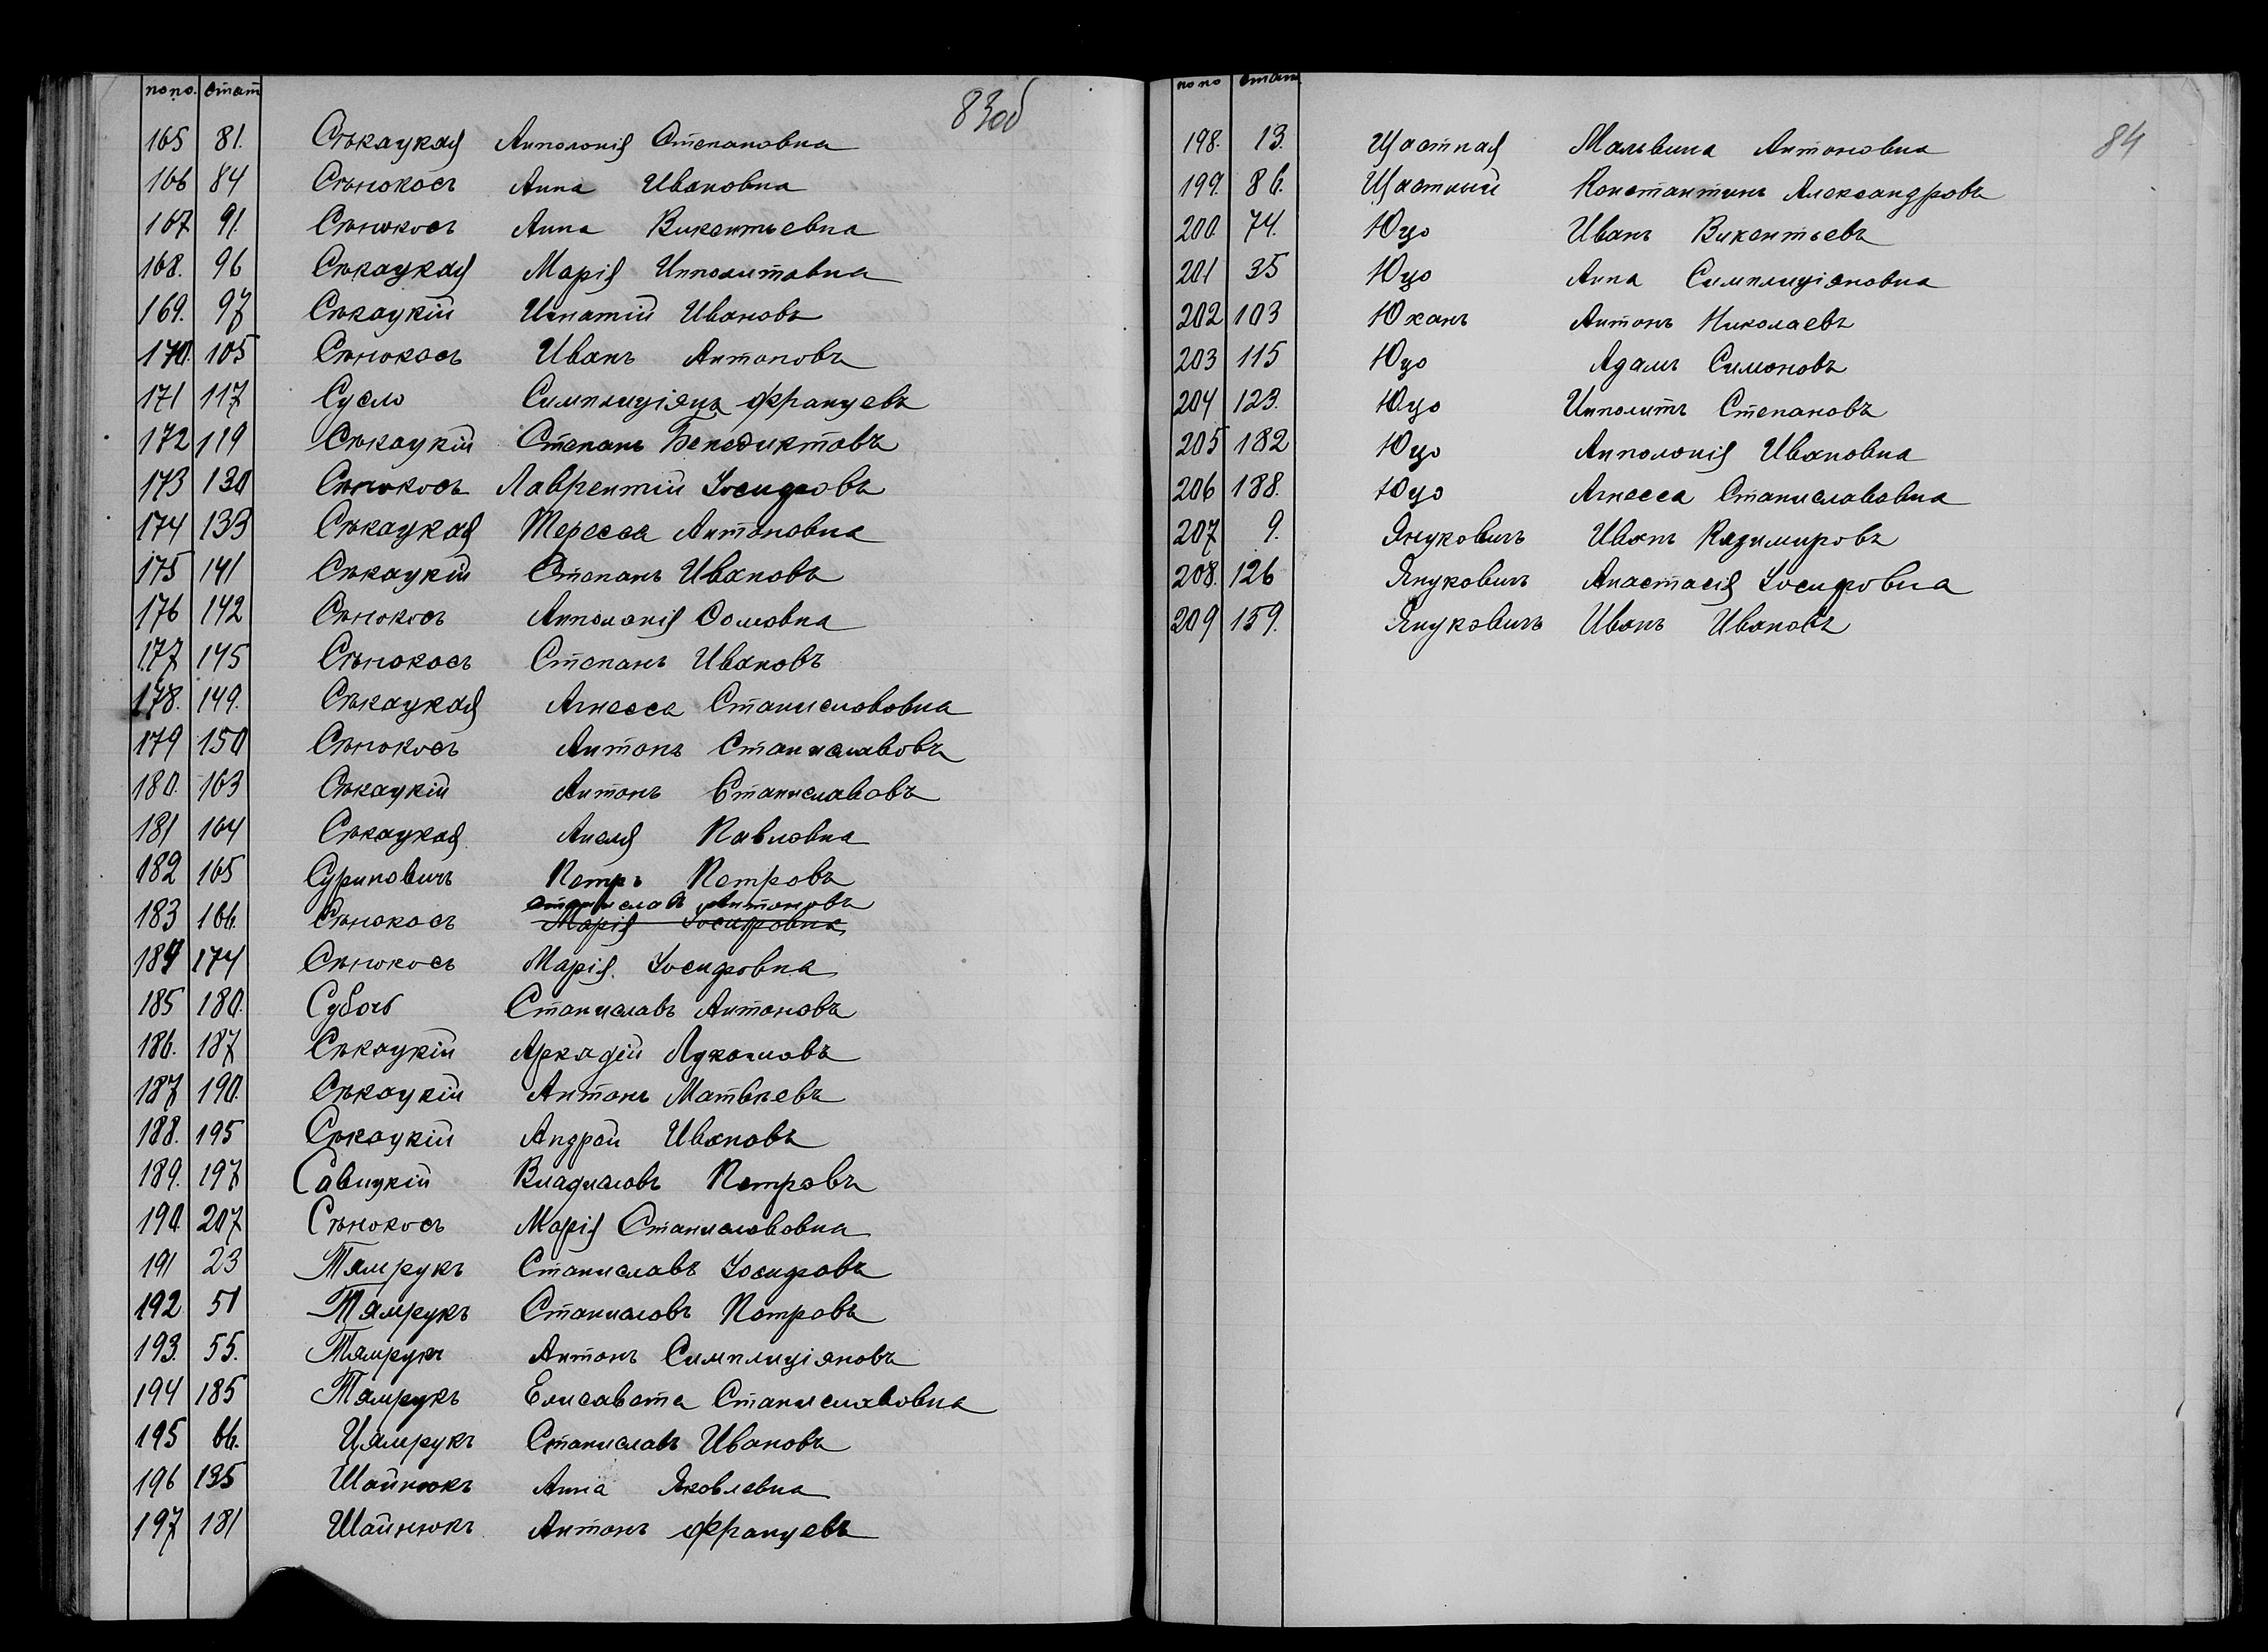 по по. стат
83об
165 81. Сѣкацкая Апполонія Степановна
166 84 Сѣнокосъ Анна Ивановна
167 91. Сѣнокосъ Анна Викентьевна
168. 96 Сѣкацкая Марія Ипполитовна
169. 97 Сѣкацкій Игнатій Ивановъ
170. 105 Сѣнокосъ Иванъ Антоновъ
171 117 Сусло Симплиціянъ Францевъ
172 119 Сѣкацкій Степанъ Бенедиктовъ
173 130 Сѣнокосъ Лаврентій Іосифовъ
174 133 Сѣкацкая Тересса Антоновна
175 141 Сѣкацкій Степанъ Ивановъ
176 142 Сѣнокосъ Апполонія Ѳомовна
177 145 Сѣнокосъ Степанъ Ивановъ
178. 149. Сѣкацкая Агнесса Станиславовна
179 150 Сѣнокосъ Антонъ Станиславовъ
180. 163 Сѣкацкій Антонъ Станиславовъ
181 164 Сѣкацкая Анеля Павловна
182 165 Суриновичъ Петръ Петровъ
Станиславъ Антоновъ
183 166. Сѣнокосъ Марія Іосифовна
184 174 Сѣнокосъ Марія Іосифовна
185 180. Субочъ Станиславъ Антоновъ
186. 187 Сѣкацкій Аркадій Лукашовъ
187 190. Сѣкацкій Антонъ Матвѣевъ
188. 195 Сѣкацкій Андрей Ивановъ
189. 197 Савицкій Владиславъ Петровъ
190 207 Сѣнокосъ Марія Станиславовна
191 23 Тямрукъ Станиславъ Іосифовъ
192 51 Тямрукъ Станиславъ Петровъ
193. 55. Тямрукъ Антонъ Симплиціяновъ
194 185 Тямрукъ Елисавета Станиславовна
195 66. Цямрукъ Станиславъ Ивановъ
196 135 Шайнюкъ Анна Яковлевна
197 181 Шайнюкъ Антонъ Францевъ
по по стат
84
198. 13. Щастная Мальвина Антоновна
199. 86. Щастный Константинъ Александровъ
200 74. Юцо Иванъ Викентьевъ
201 35 Юцо Анна Симплиціяновна
202 103 Юханъ Антонъ Николаевъ
203 115 Юцо Адамъ Симоновъ
204 123. Юцо Ипполитъ Степановъ
205 182 Юцо Апполонія Ивановна
206 188. Юцо Агнесса Станиславовна
207 9. Януковичъ Иванъ Казимировъ
208. 126 Януковичъ Анастасія Іосифовна
209 159. Януковичъ Иванъ Ивановъ